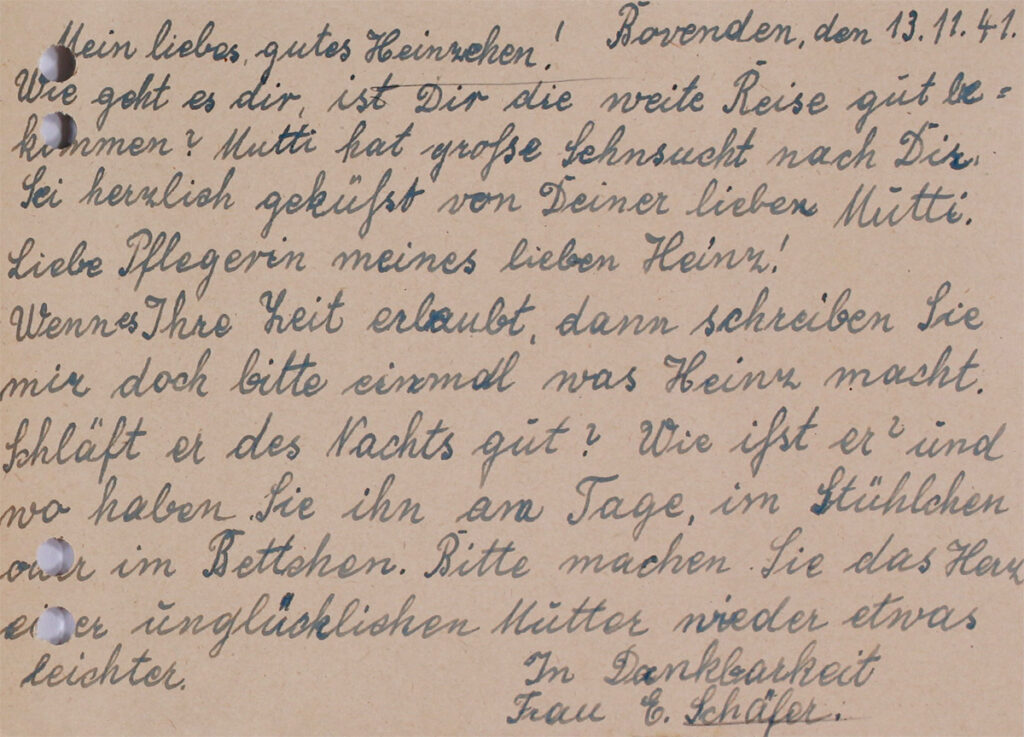 Mein liebes, gutes Heinzchen! Bovenden, den 13.11.41.
Wie geht es dir, ist Dir die weite Reise gut be=
kommen? Mutti hat große Sehnsucht nach Dir.
Sei herzlich geküßt von Deiner lieben Mutti.
Liebe Pflegerin meines lieben Heinz!
Wenn es Ihre Zeit erlaubt, dann schreiben Sie
mir doch bitte einmal was Heinz macht.
Schläft er des Nachts gut? Wie ißt er? und
wo haben Sie ihn am Tage, im Stühlchen
oder im Bettchen. Bitte machen Sie das Herz
einer unglücklichen Mutter wieder etwas
leichter. In Dankbarkeit
Frau E. Schäfer.